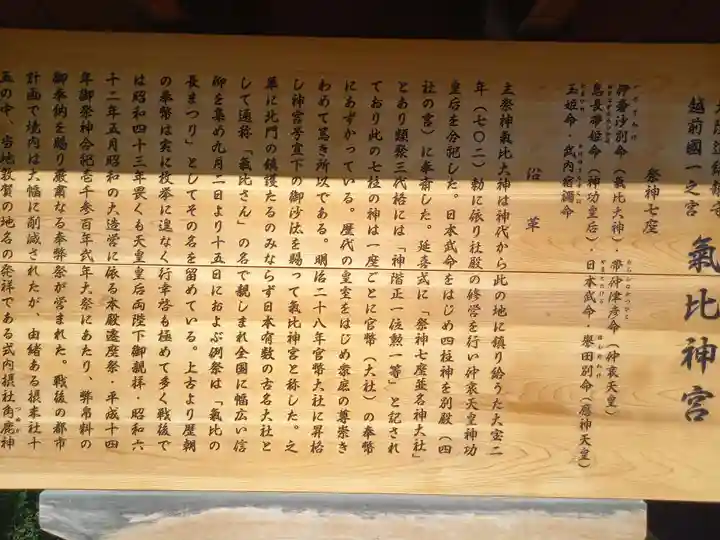 越前國一之宮
氣比神宮
祭神七座
伊奢沙別命(氣比大神)・帶仲津彦命(仲哀天皇)
息長帶姫命(神功皇后)・日本武命・譽田別命(應神天皇)
玉姫命・武内宿禰命
沿革
主祭神氣比大神は神代から此の地に鎮り給うた大宝二
年(七〇二)勅に依り社殿の修営を行い仲哀天皇神功
皇后を合祀した。日本武命をはじめ四柱神を別殿(四
社の宮)に奉斎した。延喜式に「祭神七座並名神大社」
とあり類聚三代格には「神階正一位勲一等」と記され
ており此の七柱の神は一座ごとに官幣(大社)の奉幣
にあずかっている。歴代の皇室をはじめ衆庶の尊崇き
わめて篤き所以である。明治二十八年官幣大社に昇格
し神宮号宣下の御沙汰を賜って氣比神宮と称した。之
単に北門の鎮護たるのみならず日本有数の古名大社と
して通称「氣比さん」の名で親しまれ全國に幅広い信
仰を集め九月二日より十五日におよぶ例祭は「氣比の
長まつり」としてその名を留めている。上古より歴朝
の奉幣は実に枚挙に遑なく行幸啓も極めて多く戦後で
は昭和四十三年畏くも天皇皇后両陛下御親拝・昭和六
十二年五月昭和の大造営に依る本殿遷座祭・平成十四
年御祭神合祀壱千参百年式年大祭にあたり、幣帛料の
御奉納を賜り厳粛なる奉幣祭が営まれた。戦後の都市
計画で境内は大幅に削減されたが、由緒ある摂末社十
五の中、当地敦賀の地名の発祥である式内摂社角鹿神